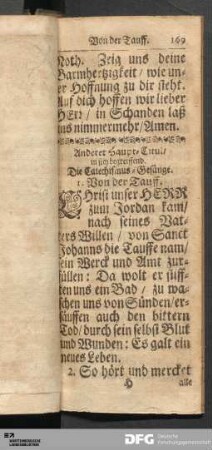 Von der Tauff. 169
Noth. Zeig uns deine
Barmhertzigkeit / wie un-
er Hoffnung zu dir steht.
Auf dich hoffen wir lieber
HErr / in Schanden laß
uns nimmermehr / Amen.
Anderer Haupt-Titul /
in sich begreiffend.
Die Catechismus-Gesänge.
1. Von der Tauff.
CHrist unser HERR
zum Jordan kam /
nach seines Vat-
ters Willen / von Sanct
Johanns die Tauffe nam /
ein Werck und Amt zur-
füllen: Da wolt er stiff-
ten uns ein Bad / zu wa-
schen uns von Sünden / er-
säuffen auch den bittern
Tod / durch sein selbst Blut
und Wunden: Es galt ein
neues Leben.
2. So hört und mercket
alle
DFG Deutsche
Forschungsgemeinschaft